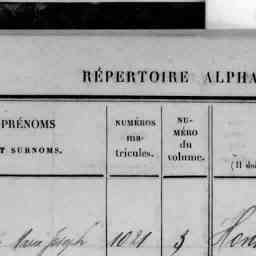 RÉPERTOIRE ALPHA
PRÉNOMS
T SURNOMS.
NUMÉROS
ma-
tricules.
NU-
MÉRO
du
volume.
(Il doi
Marie Joseph 1021 3 Hen